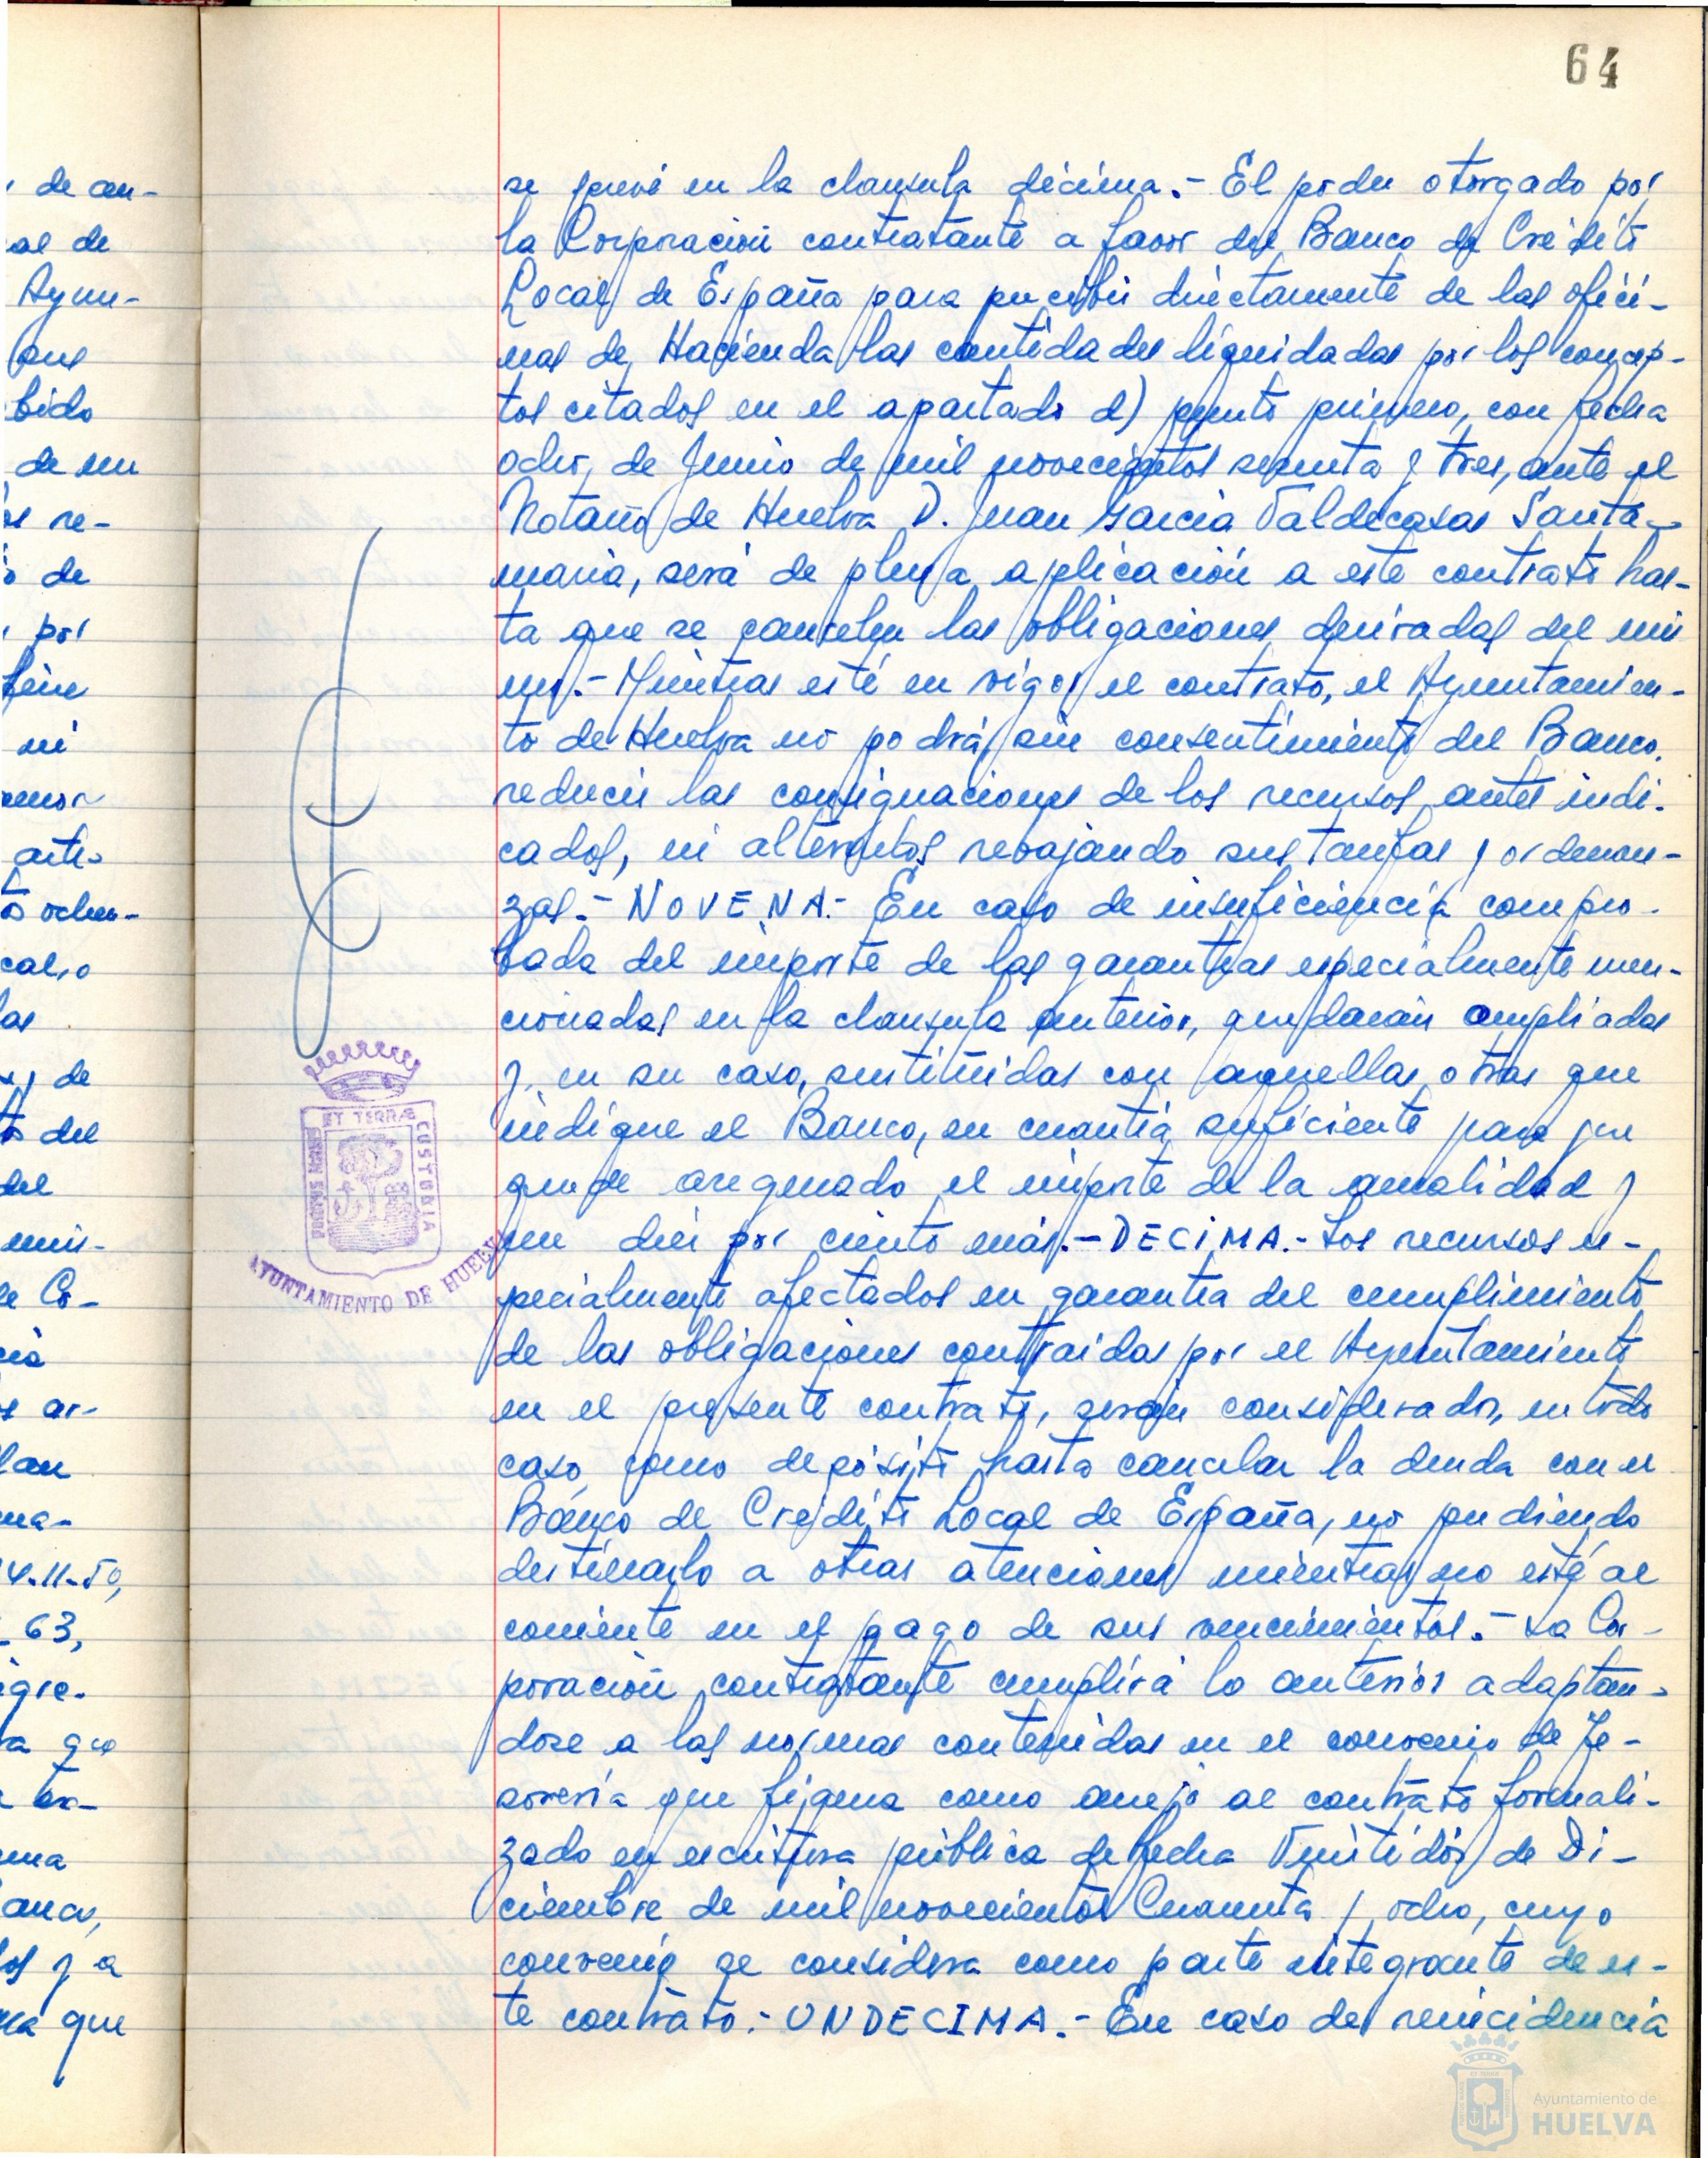 64
se prevé en la clausula décima.- El poder otorgado por
la Corporación contratante a favor del Banco de Crédito
Local de España para percibir directamente de las ofici-
nas de Hacienda las cantidades liquidadas por los concep-
tos citados en el apartado d) punto primero, con fecha
ocho, de Junio de mil novecientos sesenta y tres, ante el
Notario de Huelva D. Juan Garcia Valdecasas Santa-
maria, será de plena aplicación a este contrato has-
ta que se cancelen las obligaciones derivadas del mis
mo.- Mientras esté en vigor el contrato, el Ayuntamien-
to de Huelva no podrá, sin consentimiento del Banco,
reducir las consignaciones de los recursos antes indi-
cados, ni alterarlos rebajando sus tarifas y ordenan-
zas.- NOVENA.- En caso de insuficiencia compro-
bada del importe de las garantias especialmente men-
cionadas en la clausula anterior, quedarán ampliadas
y, en su caso, sustituidas con aquellas otras que
indique el Banco, en cuantia suficiente para que
quede asegurado el importe de la anualidad y
un diez por ciento más.- DECIMA.- Los recursos es-
pecialmente afectados en garantia del cumplimiento
de las obligaciones contraidas por el Ayuntamiento
en el presente contrato, serán considerados, en todo
caso, como depósito hasta cancelar la deuda con el
Banco de Crédito Local de España, no pudiendo
destinarlo a otras atenciones mientras no esté al
corriente en el pago de sus vencimientos.- La Cor-
poración contratante cumplirá lo anterior adaptan-
dose a las normas contenidas en el convenio de Te-
soreria que figura como anejo al contrato formali-
zado en escritura pública de fecha Veintidós de Di-
ciembre de mil novecientos Cuarenta y ocho, cuyo
convenio se considera como parte integrante de es-
te contrato.- UNDECIMA.- En caso de reincidencia
PORTUS MARIS
ET TERRÆ
CUSTODIA
AYUNTAMIENTO DE HUELV
de
al de
Ayun-
bido
de un
re-
de
por
ni
ante-
de
del
del
de Co-
ar-
4-11-50,
63,
que
ya
que
Ayuntamiento de
HUELVA